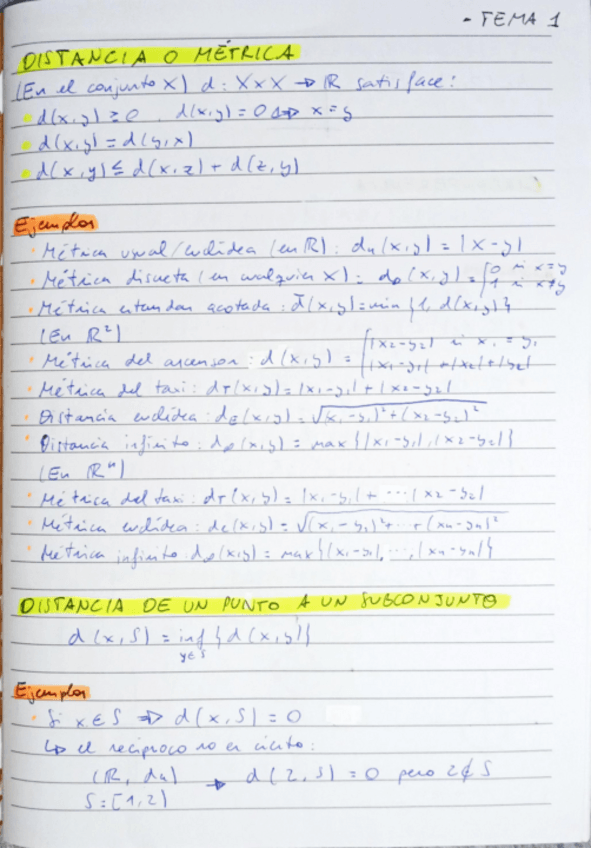 - TEMA 1
DISTANCIA O MÉTRICA
(En el conjunto X) d: X×X → ℝ satisface:
• d(x,y) ≥ 0 . d(x,y) = 0 ⇔ x=y
• d(x,y) = d(y,x)
• d(x,y) ≤ d(x,z) + d(z,y)
Ejemplos
· Métrica usual/euclídea (en ℝ): du(x,y) = |x-y|
· Métrica discreta (en cualquier X): dD(x,y) = { 0 si x=y
1 si x≠y
· Métrica estandar acotada: d̄(x,y)=min{1, d(x,y)}
(En ℝ²)
· Métrica del ascensor: d(x,y) = { |x2-y2| si x1 = y1
|x1-y1| + |x2| + |y2|
· Métrica del taxi: dT(x,y) = |x1-y1| + |x2-y2|
· Distancia euclídea: dE(x,y) = √(x1-y1)²+(x2-y2)²
· Distancia infinito: d∞(x,y) = max{|x1-y1|,|x2-y2|}
(En ℝⁿ)
· Métrica del taxi: dT(x,y) = |x1-y1| + ··· |x2-y2|
· Métrica euclídea: de(x,y) = √(x1-y1)²+···+(xn-yn)²
· Métrica infinito: d∞(x,y) = max{|x1-y1|,···,|xn-yn|}
DISTANCIA DE UN PUNTO A UN SUBCONJUNTO
d(x,S) = inf {d(x,y)}
y∈S
Ejemplos
· Si x∈S ⇒ d(x,S) = 0
↳ el recíproco no es cierto:
(ℝ, du) → d(2,S) = 0 pero 2∉S
S=[1,2)